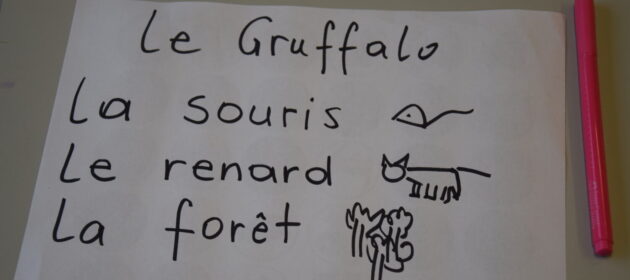 Le Gruffalo
La souris
Le renard
La forêt